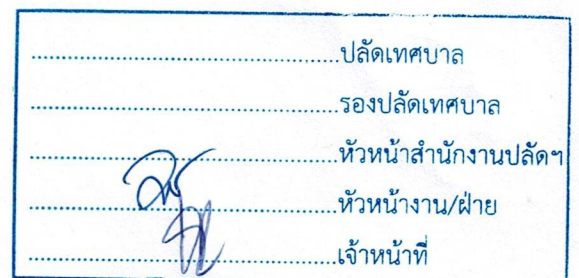 ........................................ปลัดเทศบาล
........................................รองปลัดเทศบาล
........................................หัวหน้าสำนักงานปลัดฯ
........................................หัวหน้างาน/ฝ่าย
........................................เจ้าหน้าที่